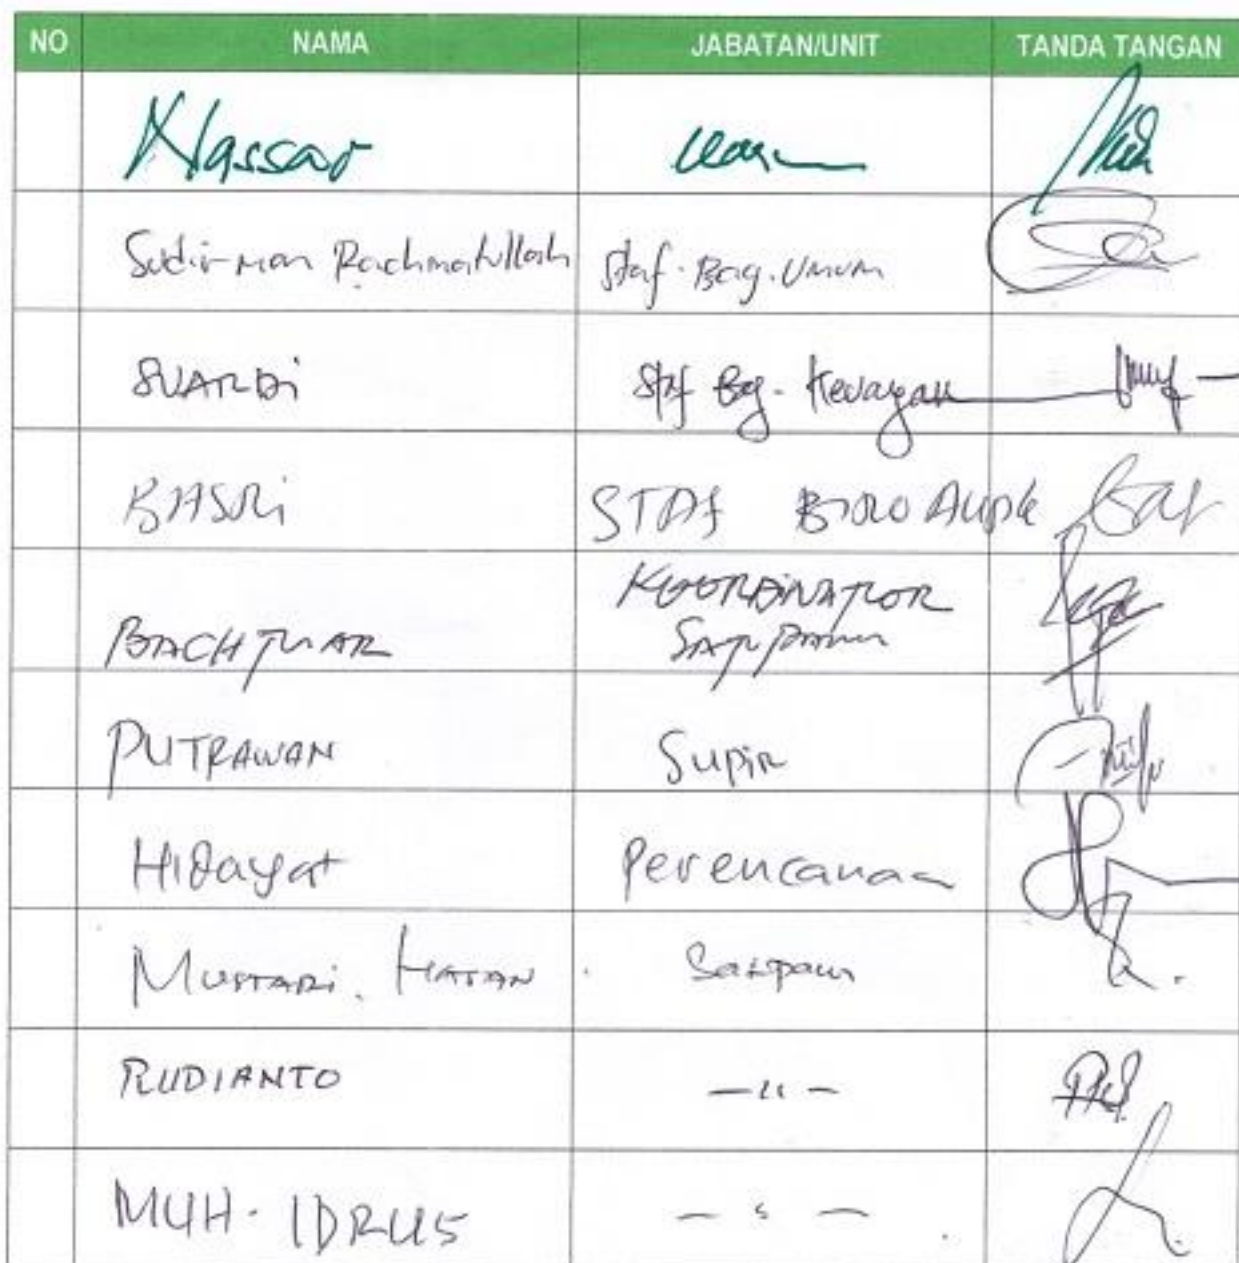 NO NAMA JABATAN/UNIT TANDA TANGAN
Hassar
Sudirman Rachmatullah Staf. Bag. Umum
SUARDi Staf Bag. Keuangan
BASRi STAf BIRO AUPK
BACHTIAR KOORDINATOR
SATPAM
PUTRAWAN Supir
HiDayat Perencanaan
MUSTARi. HASAN. Satpam
RUDIANTO — 11 —
MUH. IDRUS — s —